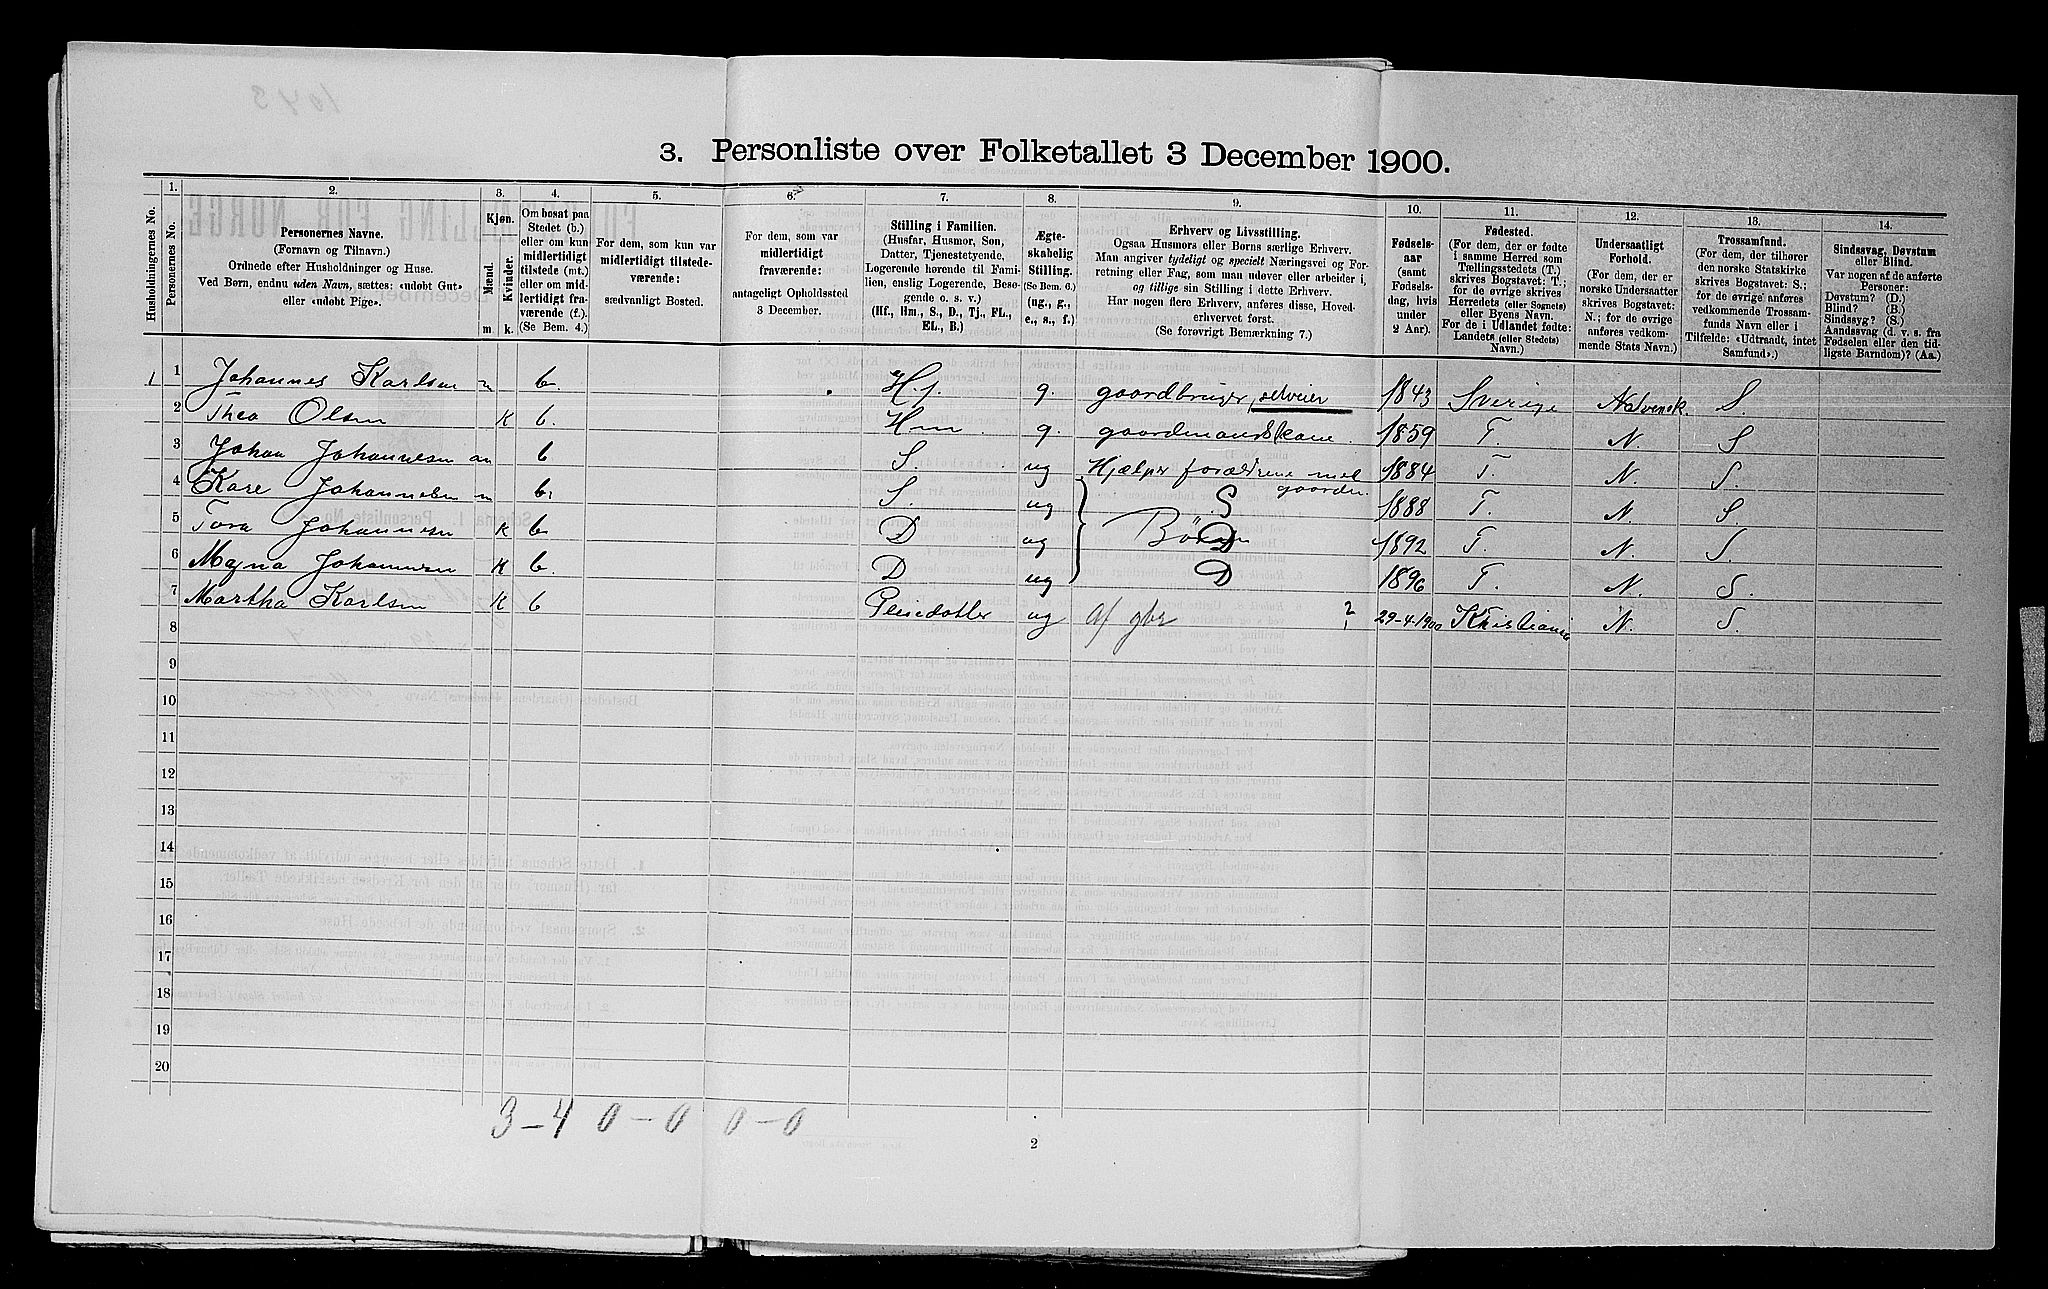 3. Personliste over Folketallet 3 December 1900.
Husholdningernes No.
1.
Personernes No.
2.
Personernes Navne.
(Fornavn og Tilnavn.)
Ordnede efter Husholdninger og Huse.
Ved Børn, endnu uden Navn, sættes: «udøbt Gut»
eller «udøbt Pige».
3.
Kjøn.
Mænd.
Kvinder.
m.
k.
4.
Om bosat paa
Stedet (b.)
eller om kun
midlertidigt
tilstede (mt.)
eller om mid-
lertidigt fra-
værende (f.).
(Se Bem. 4.)
5.
For dem, som kun var
midlertidigt tilstede-
værende:
sædvanligt Bosted.
6.
For dem, som var
midlertidigt
fraværende:
antageligt Opholdssted
3 December.
7.
Stilling i Familien.
(Husfar, Husmor, Søn,
Datter, Tjenestetyende,
Logerende hørende til Fami-
lien, enslig Logerende, Besø-
gende o. s. v.)
(Hf., Hm., S., D., Tj., FL.,
EL., B.)
8.
Ægte-
skabelig
Stilling.
(Se Bem. 6.)
(ug., g.,
e., s., f.)
9.
Erhverv og Livsstilling.
Ogsaa Husmors eller Børns særlige Erhverv.
Man angiver tydeligt og specielt Næringsvei og For-
retning eller Fag, som man udøver eller arbeider i,
og tillige sin Stilling i dette Erhverv.
Har nogen flere Erhverv, anføres disse, Hoved-
erhvervet først.
(Se forøvrigt Bemærkning 7.)
10.
Fødsels-
aar
(samt
Fødsels-
dag, hvis
under
2 Aar).
11.
Fødested.
(For dem, der er fødte
i samme Herred som
Tællingsstedets (T.)
skrives Bogstavet: T.;
for de øvrige skrives
Herredets (eller Sognets)
eller Byens Navn.
For de i Udlandet fødte:
Landets (eller Stedets)
Navn.)
12.
Undersaatligt
Forhold.
(For dem, der er
norske Undersaatter
skrives Bogstavet:
N.; for de øvrige
anføres vedkom-
mende Stats Navn.)
13.
Trossamfund.
(For dem, der tilhører
den norske Statskirke
skrives Bogstavet: S.;
for de øvrige anføres
vedkommende Trossam-
funds Navn eller i
Tilfælde: «Udtraadt, intet
Samfund».)
14.
Sindssvag, Døvstum
eller Blind.
Var nogen af de anførte
Personer:
Døvstum? (D.)
Blind? (B.)
Sindssyg? (S.)
Aandssvag (d. v. s. fra
Fødselen eller den tid-
ligste Barndom)? (Aa.)
1 1 Johannes Karlsen m b. Hf. g. gaardbruger, selveier 1843 Sverige S.
2 Thea Olsen K b. Hm. g. gaardmandskone. 1859 T. N. S
3 Johan Johannesen m b S. ug Hjælper forældrene med gaarden. 1884 T. N. S.
4 Kare Johannesen m b. S ug S 1888 T. N. S
5 Tora Johannesen K b. D ug Børn D 1892 T. N. S.
6 Magna Johannesen K b. D ug D 1896 T. N. S.
7 Martha Karlsen K b Pleiedatter ug af gbr ? 29-4-1900 Kristiania N. S.
8
9
10
11
12
13
14
15
16
17
18
19
20
3-4 0-0 0-0
2